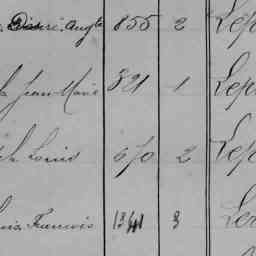 Désiré Augte 855 2 Lep
Jean Marie 321 1 Lep
h. Louis 670 2 Lep
François 1341 3 Ler